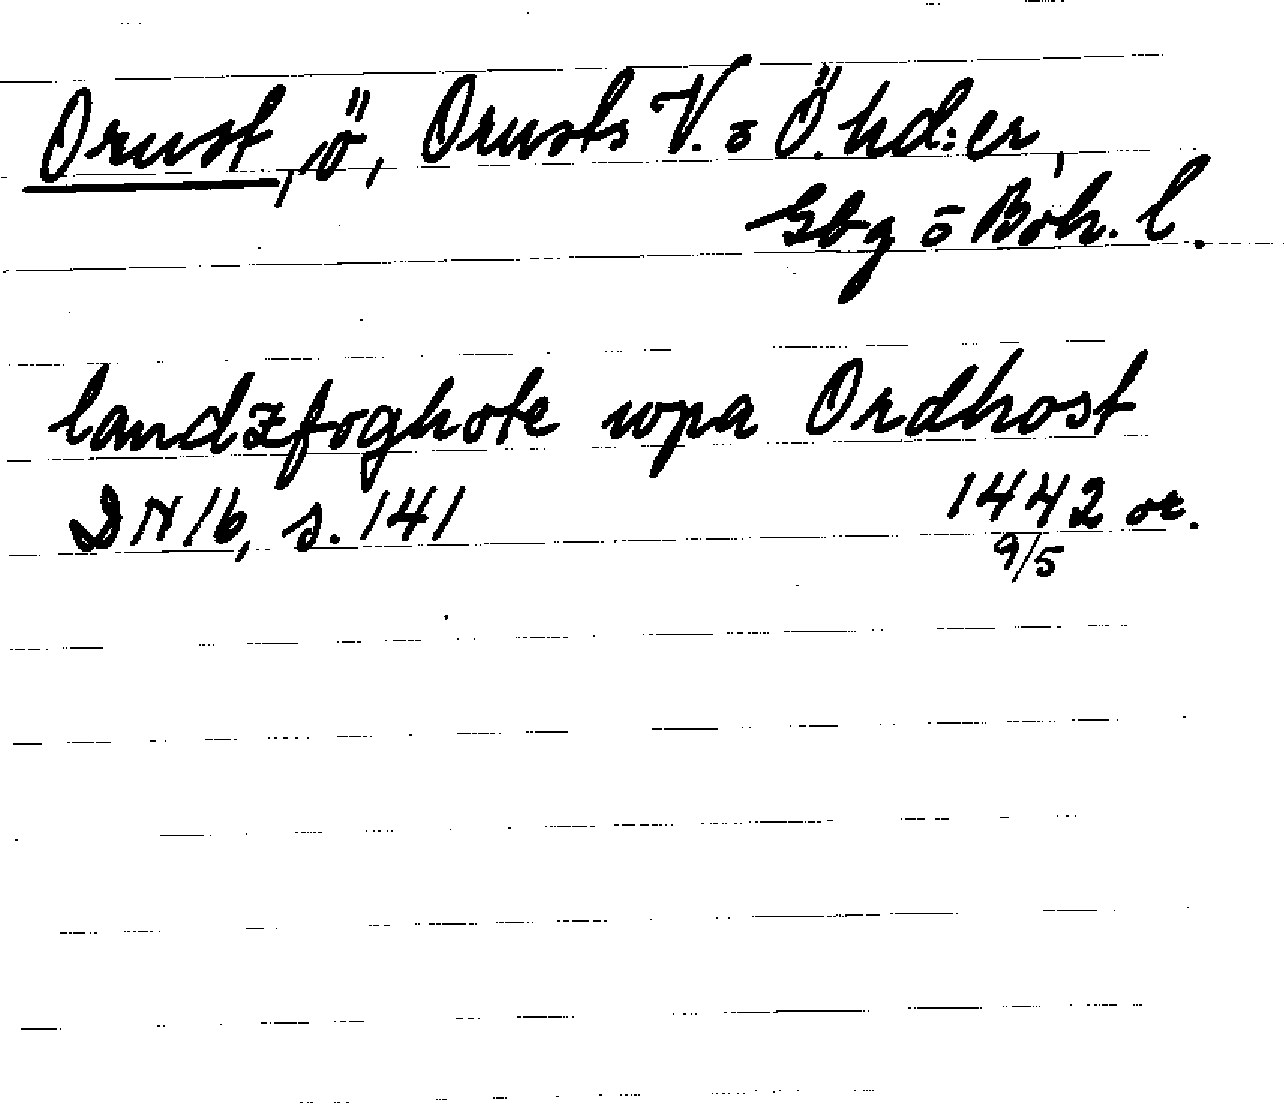 Orust, ö, Orusts V. o Ö. hd:er,
Gbg o Boh. l.
landzfoghote wpa Ordhost
DN 16, s. 141 1442 or.
9/5